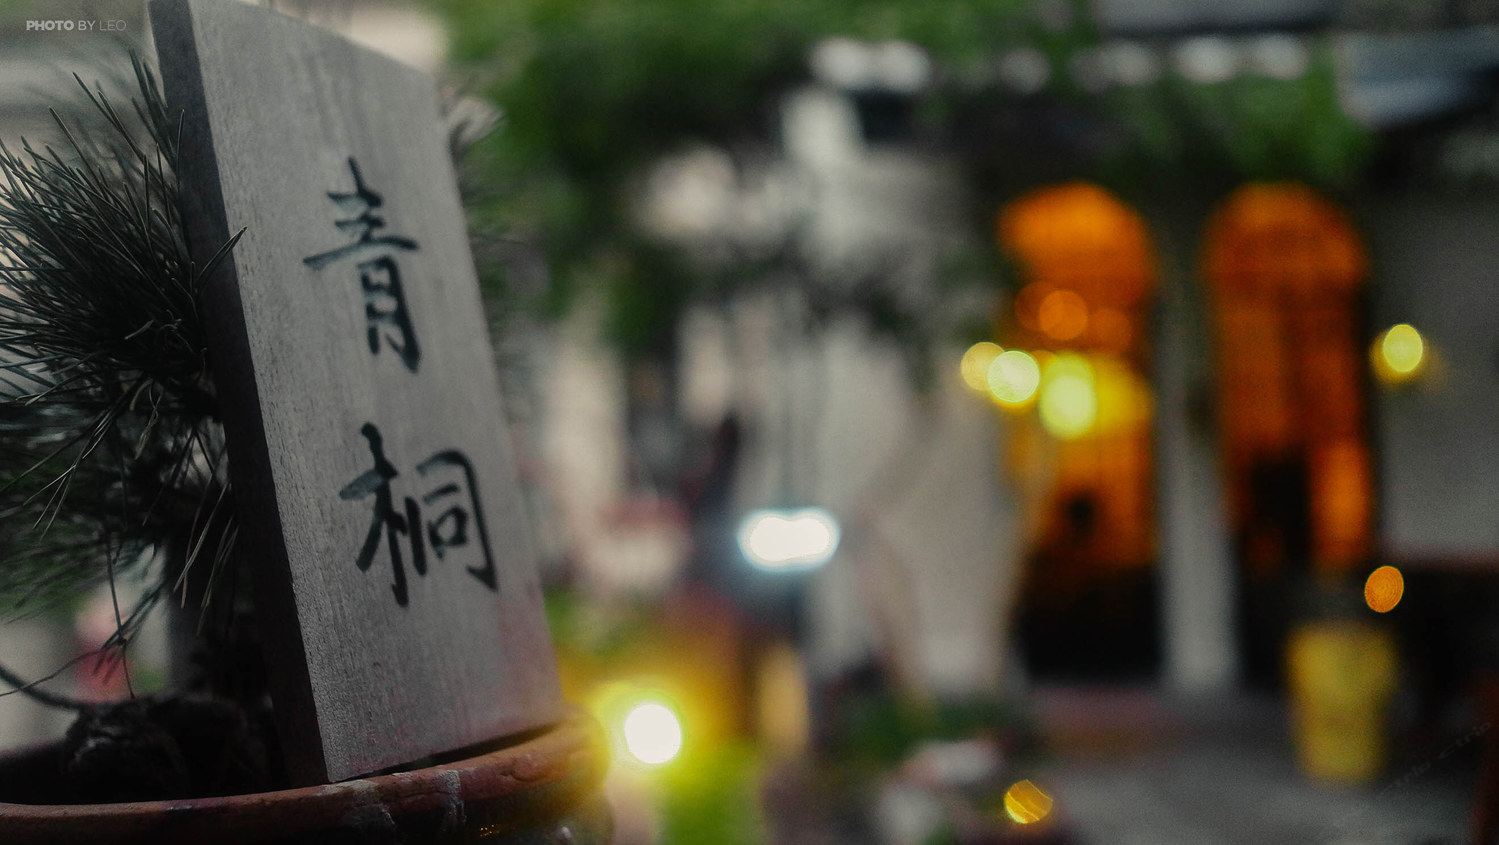 PHOTO BY LEO
青桐